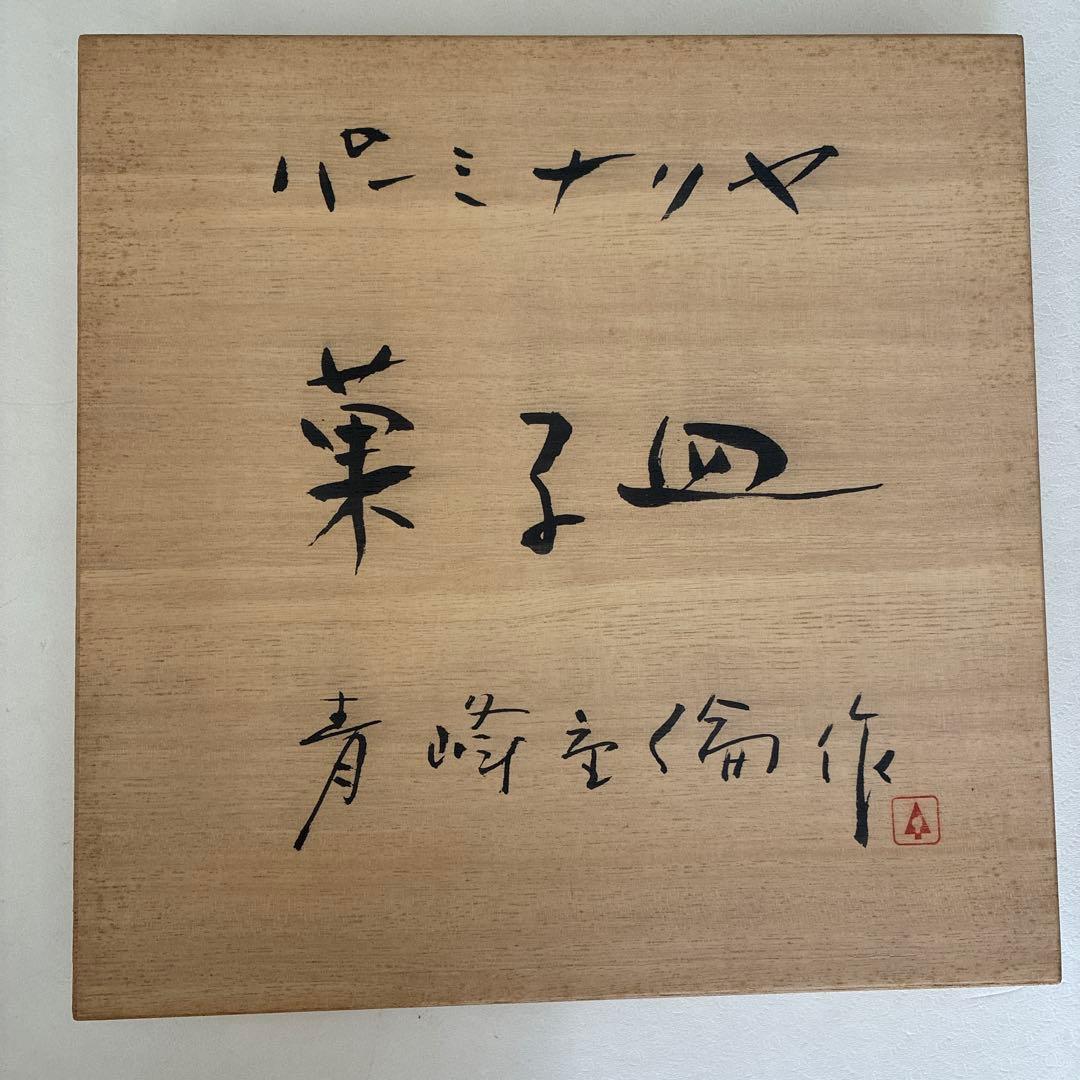 パーミナリヤ
菓子皿
青峰重倫作